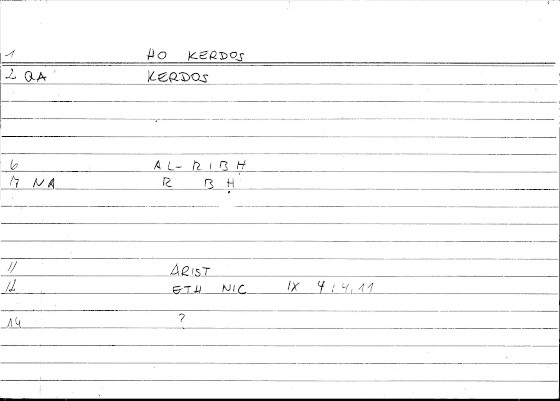 1 HO KERDOS
2 QA KERDOS
6 AL-RIBḤ
7 NA R BḤ
11 ARIST
12 ETH NIC IX 4;4,11
14 ?